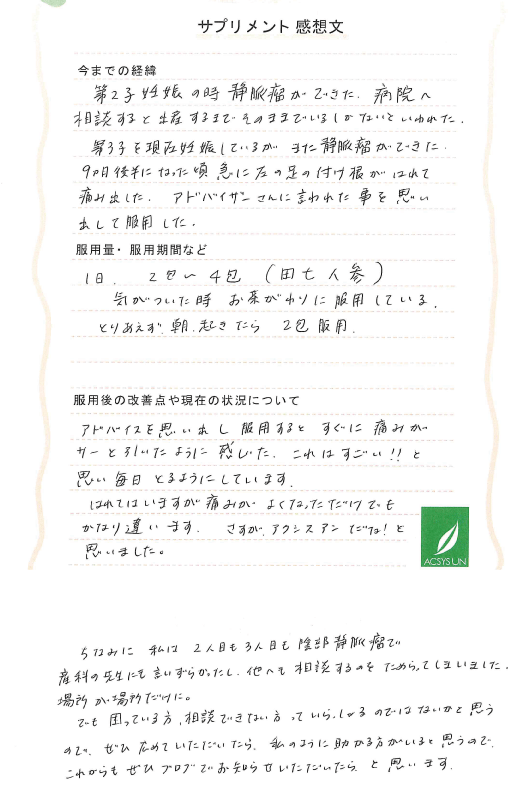 サプリメント 感想文
今までの経緯
第2子妊娠の時 静脈瘤ができた. 病院へ
相談すると出産するまでそのままでいるしかないといわれた.
第3子を現在妊娠しているが また静脈瘤ができた.
9ヵ月後半になった頃 急に左の足の付け根がはれて
痛み出した. アドバイザーさんに言われた事を思い
出して服用した.
服用量・服用期間など
1日. 2包〜4包 (田七人参)
気がついた時 お茶がわりに服用している.
とりあえず. 朝.起きたら 2包服用.
服用後の改善点や現在の状況について
アドバイスを思い出し 服用すると すぐに痛みが
サーと引いたように感じた. これはすごい!!と
思い毎日とるようにしています.
はれてはいますが痛みが よくなっただけでも
かなり違います. さすが.アクシスアンだな!と
思いました。
ACSYSUN
ちなみに 私は 2人目も3人目も陰部静脈瘤で
産科の先生にも言いずらかったし.他へも相談するのをためらってしまいました.
場所が場所だけに。
でも困っている方、相談できない方っていらっしゃるのではないかと思う
ので. ぜひ広めていただいたら. 私のように助かる方がいると思うので.
これからもぜひブログでお知らせいただいたら と思います.